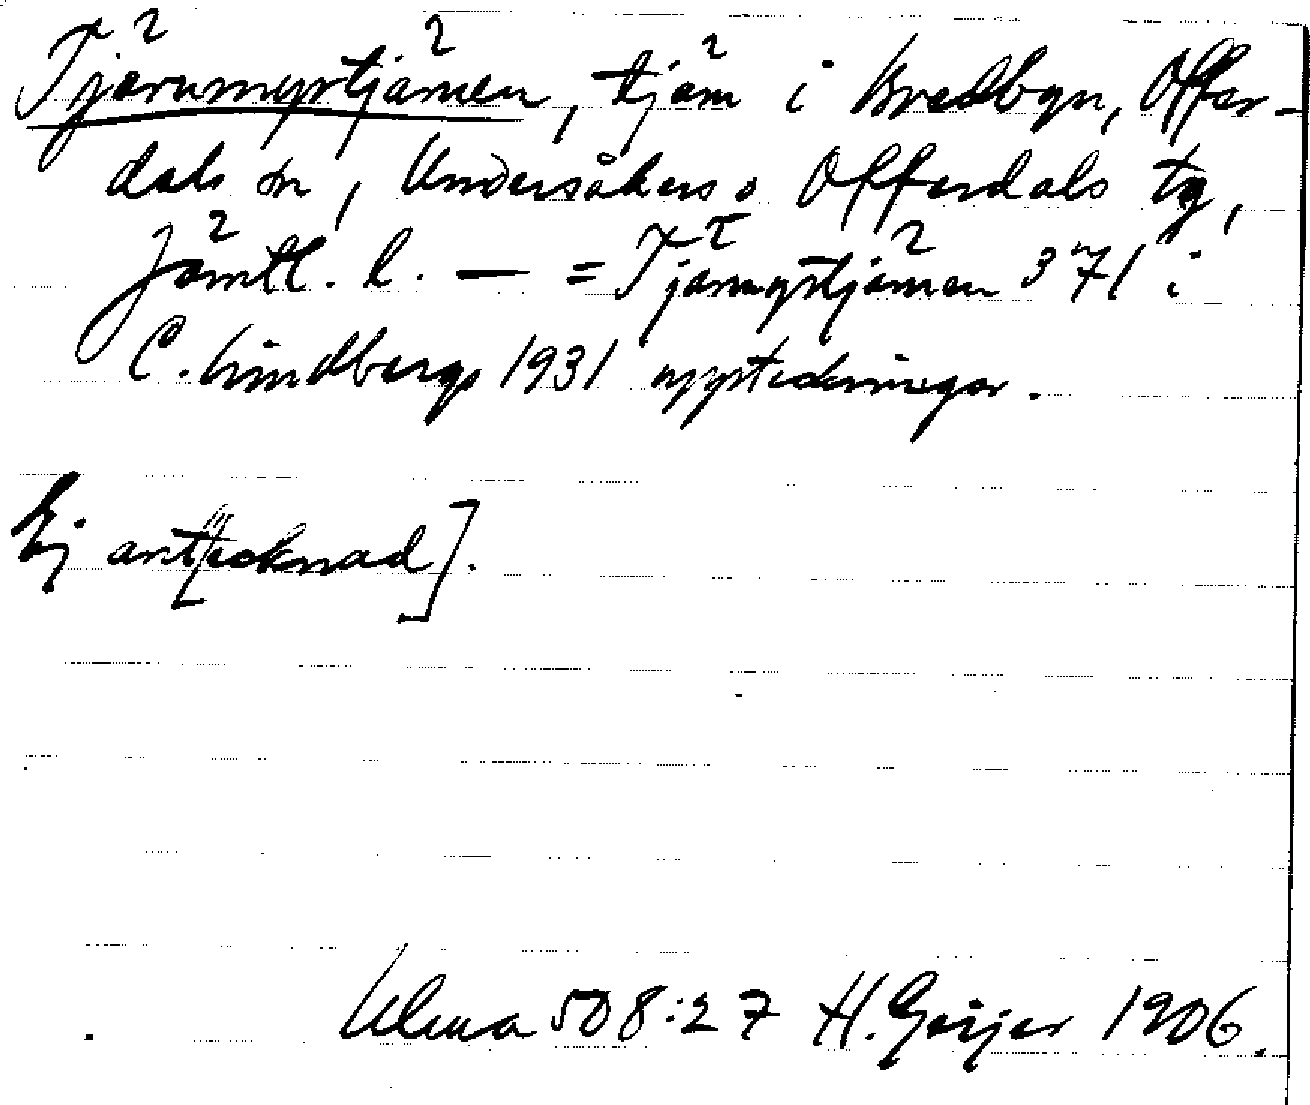 Tjärnmyrtjärnen, tjärn i Bredbyn, Offer-
dals sn, Undersåkers o Offerdals tg,
Jämtl. l. — = Tjärnmyrtjärnen 371 i
C. Lindbergs 1931 uppteckningar.
Ej ant[ecknad].
Ulma 508:27 H. Geijer 1906.